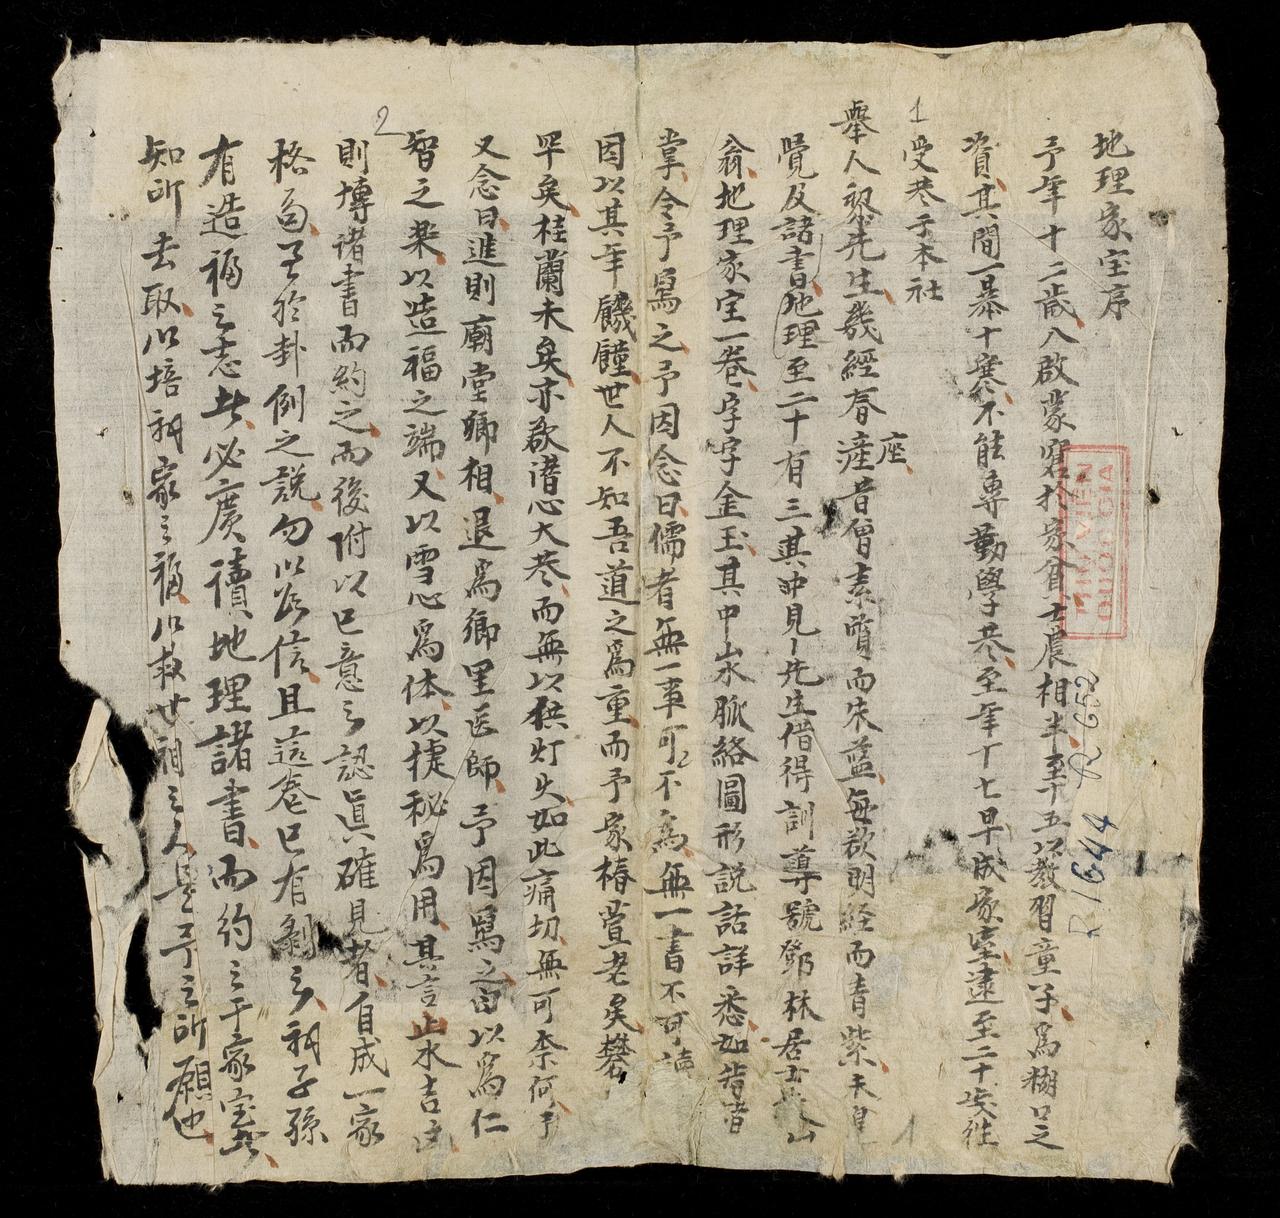 地理家宝序
予年十二歲入啟蒙窘於家貧士農相半至十五以教習童子為糊口之
資其間一暴十寒不能專勤學巻至年十七早成家室逮至二十失往
受巻于本社
舉人黎先生幾經春座
昔僧素質而朱藍每欲明經而青紫未
覺及諸書地理至二十有三其時見先生借得訓導號鄧林居士
翁地理家宝一巻字字金玉其中山水脈絡圖形說話詳悉如指
掌令予寫之予因念曰儒者無一事可不為無一書不可讀
因以其年饑饉世人不知吾道之為重而予家椿萱老矣
罕矣桂蘭未矣亦欲潛心大巻而無以供灯火如此痛切無可柰何予
又念曰進則廟堂卿相退為鄉里医師予因寫之曰以為仁
智之楽以造福之端又以雪心為体以捷秘為用其言止水吉凶
則博諸書而約之而後附以己意之認眞確見者自成一家
格局至於卦例之說勿以為信且這巻已有剩之嗣子孫
有造福之志者必廣讀地理諸書而約之于家宝者
知所去取以培嗣家之福以救世間之人是予之所願也
1
2
1
THƯ VIEN
QUOC GIA
R.652
R1644